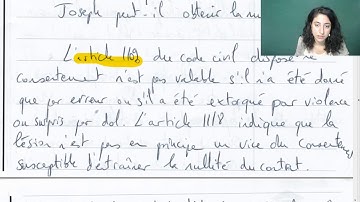 Joseph peut-il obtenir la nu
L'article 1109 du code civil dispose
consentement n'est pas valable s'il n'a été donné
que par erreur ou s'il a été extorqué par violence
ou surpris par dol. L'article 1118 indique que la
lésion n'est pas en principe un vice du consentement
susceptible d'entraîner la nullité du contrat.